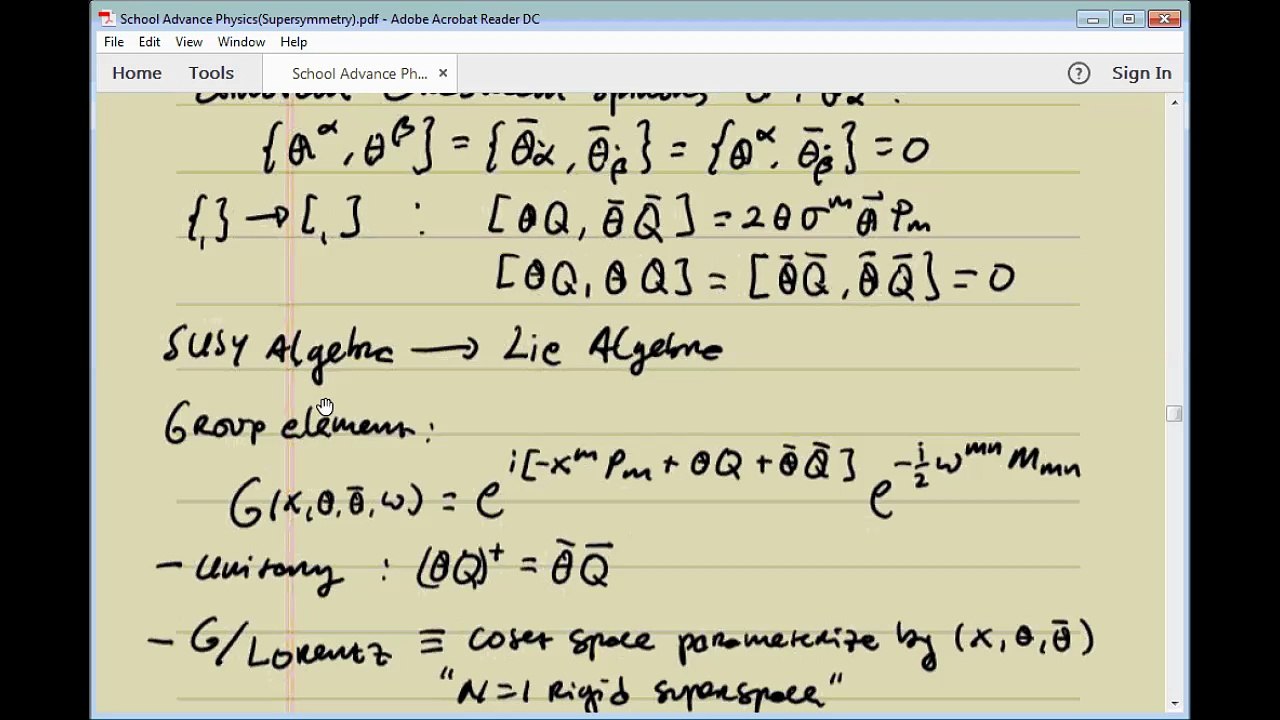 School Advance Physics(Supersymmetry).pdf - Adobe Acrobat Reader DC
File Edit View Window Help
Home Tools School Advance Ph... × ? Sign In
{θ^α, θ^β} = {θ̄_α̇, θ̄_β̇} = {θ^α, θ̄_β̇} = 0
{,} → [,] : [θQ, θ̄Q̄] = 2θσ^m θ̄ P_m
[θQ, θQ] = [θ̄Q̄, θ̄Q̄] = 0
SUSY Algebra → Lie Algebra
Group element:
G(x, θ, θ̄, ω) = e^{i[-x^m P_m + θQ + θ̄Q̄]} e^{-i/2 ω^{mn} M_{mn}}
- Unitary : (θQ)^+ = θ̄Q̄
- G/Lorentz ≡ coset space parameterize by (x, θ, θ̄)
"N=1 rigid superspace"